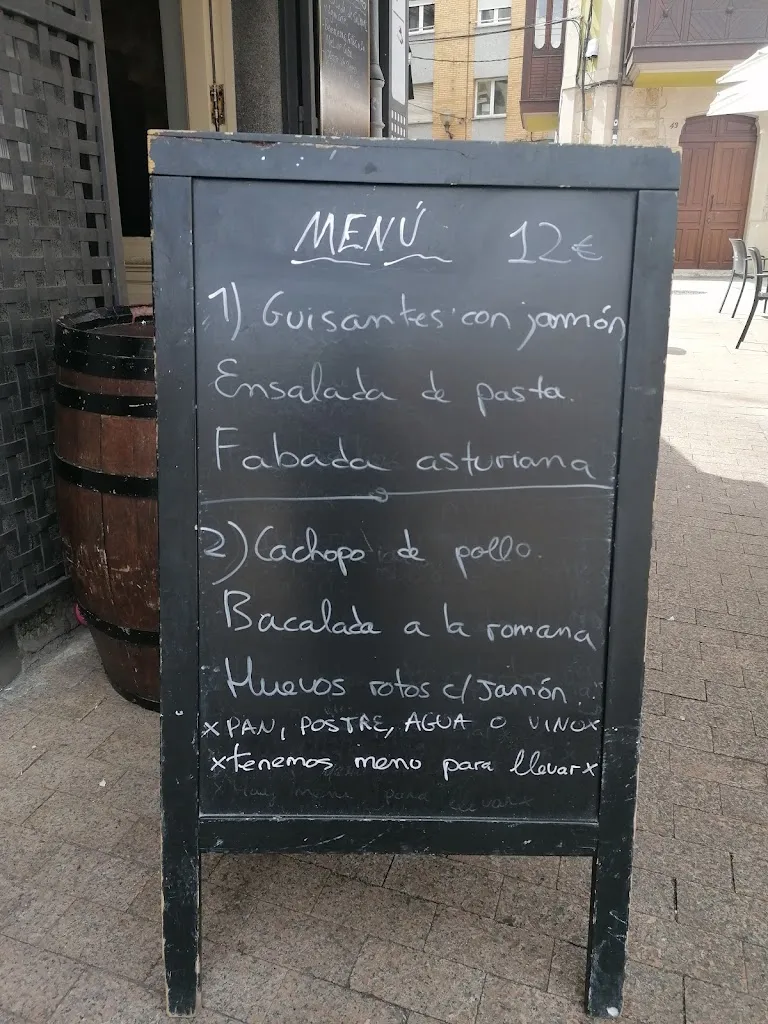 MENÚ 12€
1) Guisantes con jamón
Ensalada de pasta.
Fabada asturiana
2) Cachopo de pollo.
Bacalada a la romana
Huevos rotos c/Jamón.
x PAN, POSTRE, AGUA O VINO x
x tenemos meno para llevar x
x Hay menu para llevar x
49